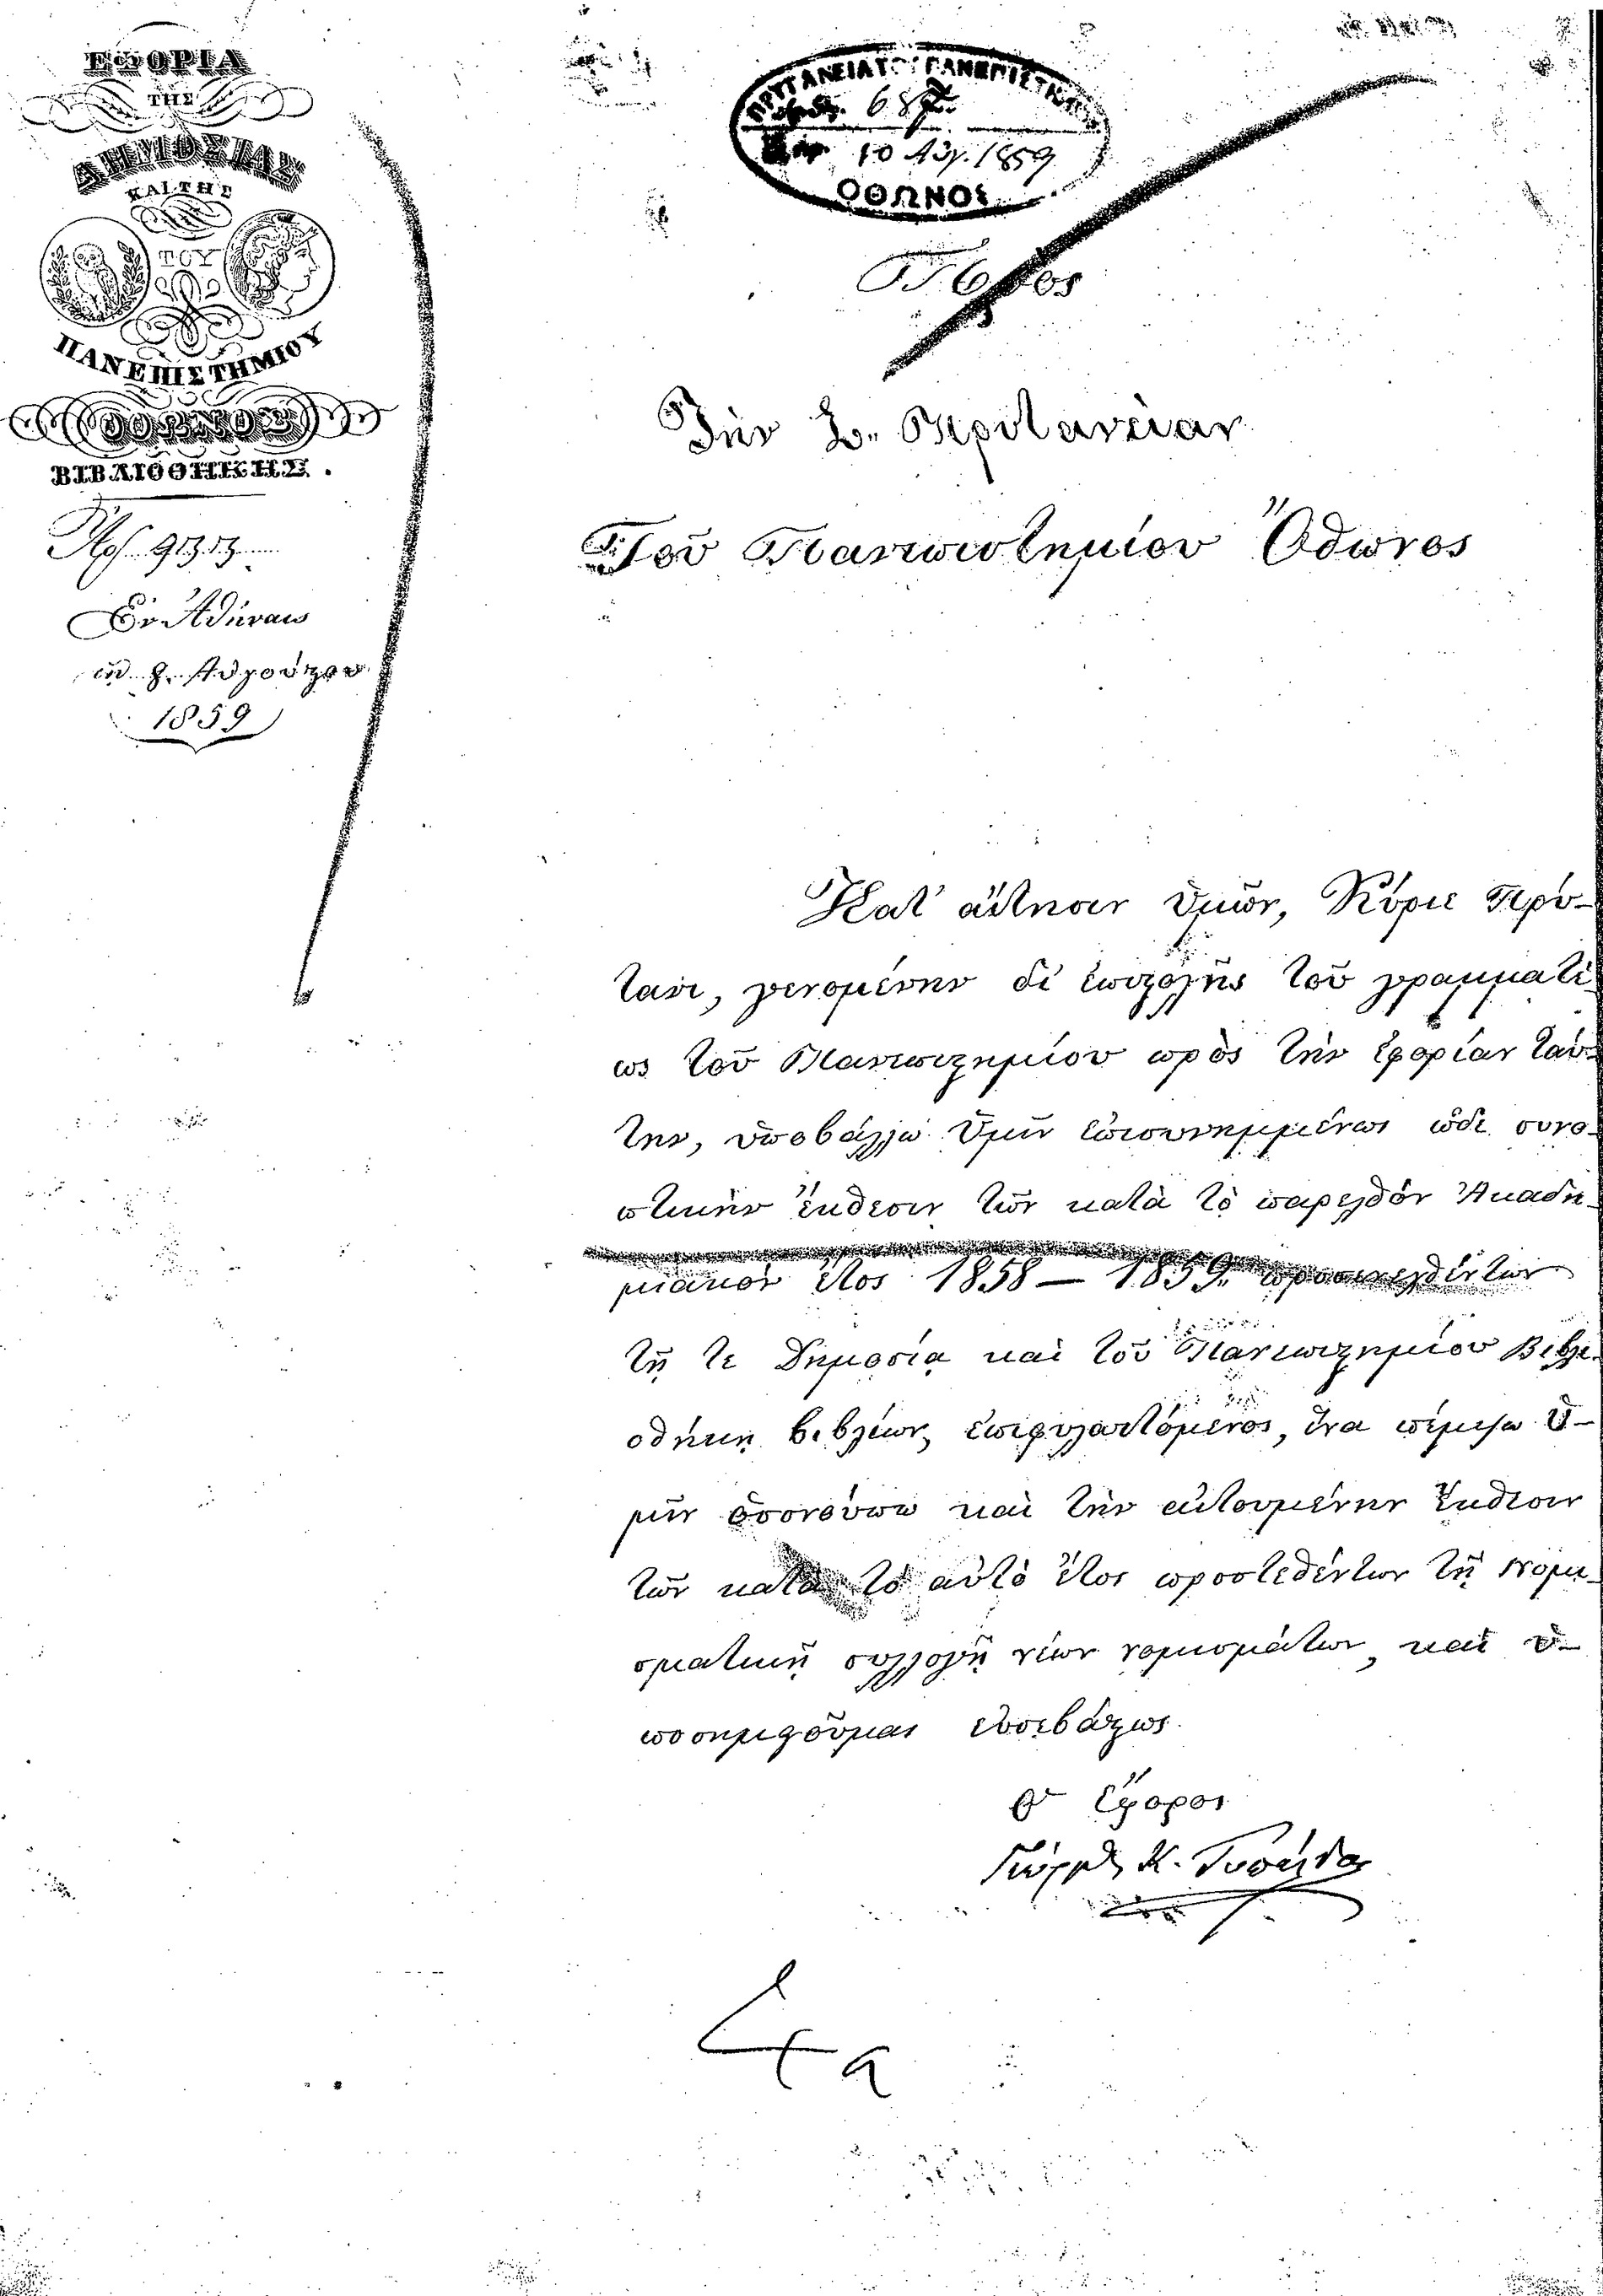 ΕΦΟΡΙΑ
ΤΗΣ
ΔΗΜΟΣΙΑΣ
ΚΑΙ ΤΗΣ
ΤΟΥ
ΠΑΝΕΠΙΣΤΗΜΙΟΥ
ΟΘΩΝΟΣ
ΒΙΒΛΙΟΘΗΚΗΣ.
Ἐν Ἀθήναις
τῇ 8 Αὐγούστου
1859
ΠΡΥΤΑΝΕΙΑ ΤΟΥ ΠΑΝΕΠΙΣΤΗΜΙΟΥ
10 Αὐγ. 1859
ΟΘΩΝΟΣ
Πρὸς
Τὴν Σ. Πρυτανείαν
Τοῦ Πανεπιστημίου Ὄθωνος
Κατ' αἴτησιν ὑμῶν, Κύριε Πρύ-
τανι, γενομένην δι' ἐπιστολῆς τοῦ γραμματέ-
ως τοῦ Πανεπιστημίου πρὸς τὴν ἐφορίαν ταύ-
την, ὑποβάλλω ὑμῖν ἐπισυνημμένως ὧδε συνο-
πτικὴν ἔκθεσιν τῶν κατὰ τὸ παρελθὸν Ἀκαδη-
μιακὸν ἔτος 1858 — 1859 προσκτηθέντων
τῇ τε Δημοσίᾳ καὶ τοῦ Πανεπιστημίου Βιβλι-
οθήκῃ βιβλίων, ἐπιφυλαττόμενος, ἵνα πέμψω ὑ-
μῖν ὅσον οὔπω καὶ τὴν αἰτουμένην ἔκθεσιν
τῶν κατὰ τὸ αὐτὸ ἔτος προστεθέντων τῇ Νομι-
σματικῇ συλλογῇ νέων νομισμάτων, καὶ ὑ-
ποσημειοῦμαι εὐσεβάστως.
Ὁ Ἔφορος
Γεώργ. Κ. Τυπάλδος